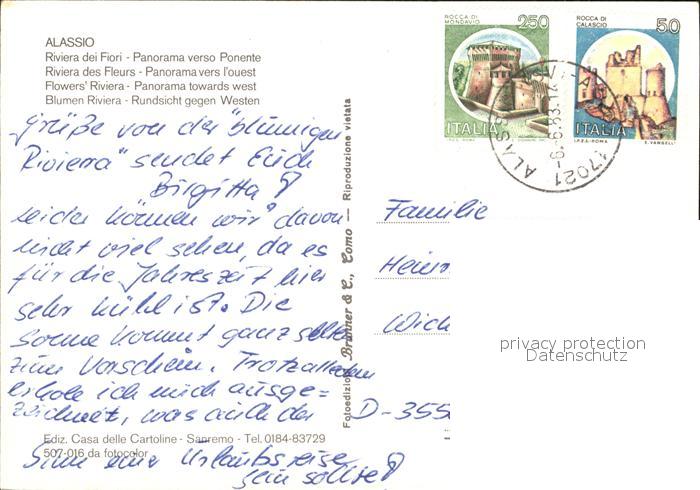 ALASSIO
Riviera dei Fiori - Panorama verso Ponente
Riviera des Fleurs - Panorama vers l'ouest
Flowers' Riviera - Panorama towards west
Blumen Riviera - Rundsicht gegen Westen
„Grüße von der "blumigen
Riviera" sendet Euch
Birgitta
Leider können wir davon
nicht viel sehen, da es
für die Jahreszeit hier
sehr kühl ist. Die
Sonne kommt ganz selten
zum Vorschein. Trotzalledem
erhole ich mich ausge=
zeichnet, was auch der
Sinn einer Urlaubsreise
sein sollte
Ediz. Casa delle Cartoline - Sanremo - Tel. 0184-83729
507-016 da fotocolor
Fotoedizioni Brunner & C., Como — Riproduzione vietata
ROCCA DI
MONDAVIO
250
ITALIA
I.P.Z.S.-ROMA
ROCCA DI
CALASCIO
50
ITALIA
I.P.Z.S.-ROMA E. VANGELLI
17021 ALASSIO
Familie
Heinr
Wick
D-355
privacy protection
Datenschutz